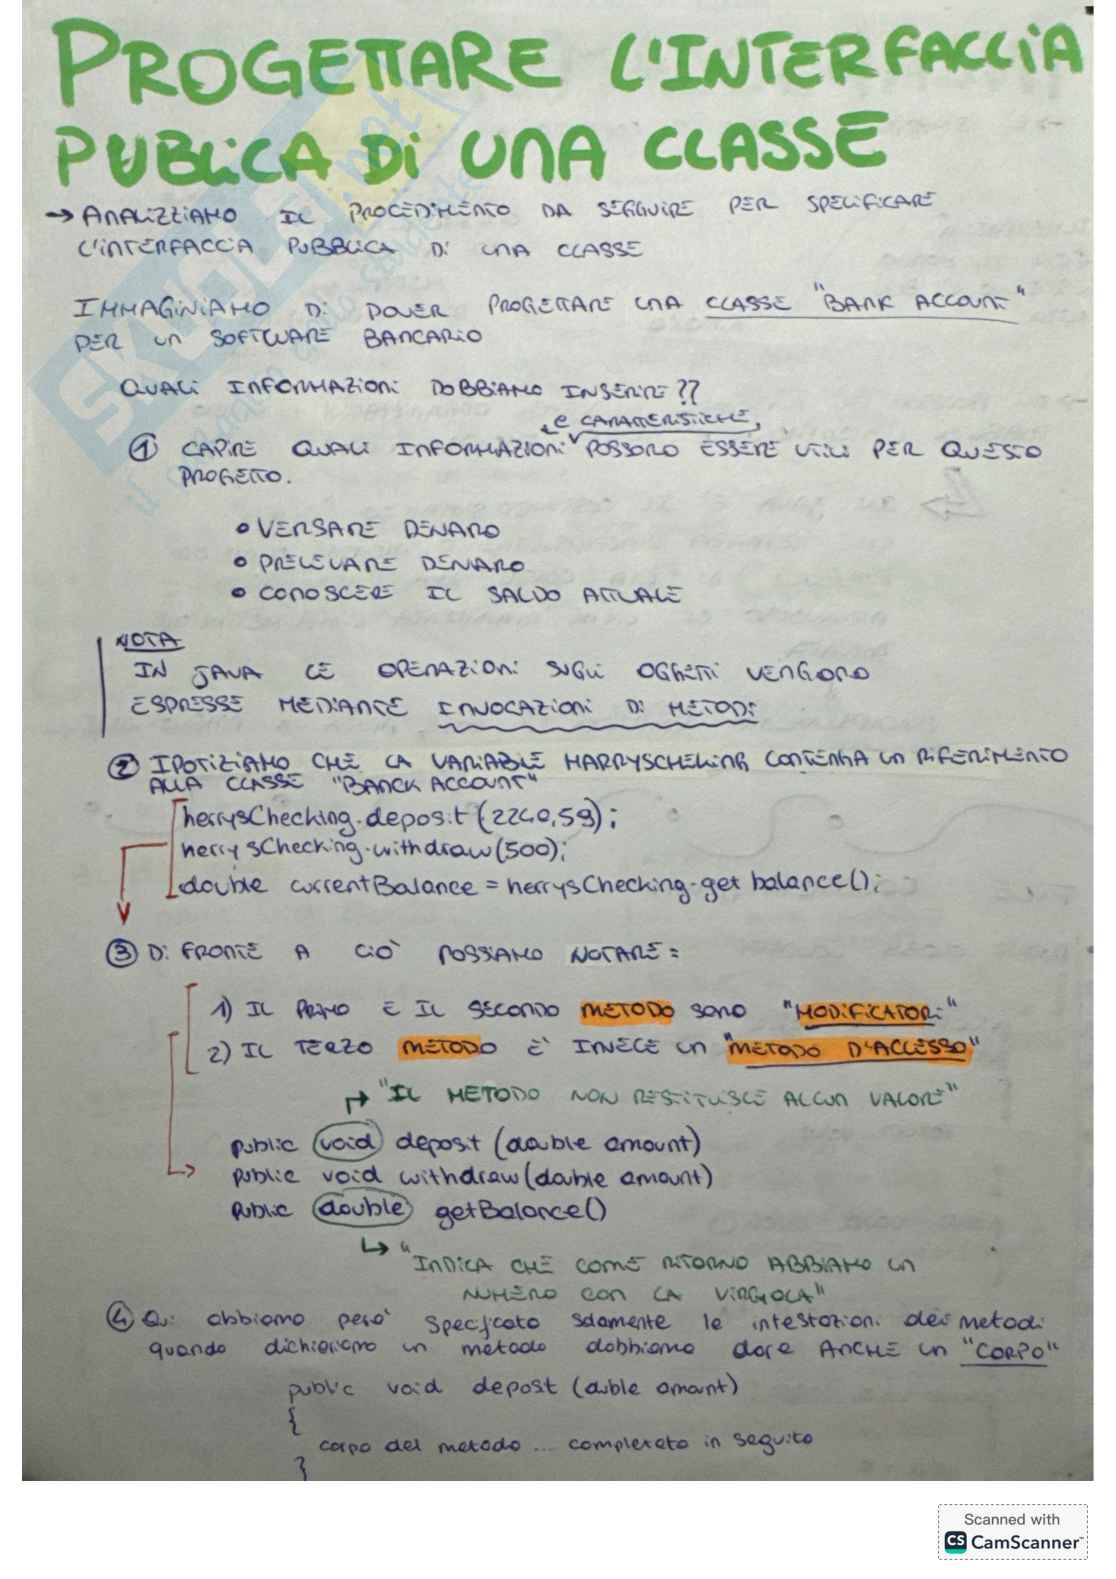 PROGETTARE L'INTERFACCIA
PUBLICA DI UNA CLASSE
→ ANALIZZIAMO IL PROCEDIMENTO DA SEGGUIRE PER SPECIFICARE
L'INTERFACCIA PUBBLICA DI UNA CLASSE
IMMAGINIAMO DI DOVER PROGETTARE UNA CLASSE "BANK ACCOUNT"
PER UN SOFTWARE BANCARIO
QUALI INFORMAZIONI DOBBIAMO INSERIRE??
E CARATTERISTICHE,
① CAPIRE QUALI INFORMAZIONI POSSONO ESSERE UTILI PER QUESTO
PROGETTO.
• VERSARE DENARO
• PRELEVARE DENARO
• CONOSCERE IL SALDO ATTUALE
NOTA
IN JAVA LE OPERAZIONI SUGLI OGGETTI VENGONO
ESPRESSE MEDIANTE INVOCAZIONI DI METODI
② IPOTIZIAMO CHE LA VARIABILE HARRYSCHEKING CONTENGA UN RIFERIMENTO
ALLA CLASSE "BANCK ACCOUNT"
herrysChecking.deposit(2240,59);
herrysChecking.withdraw(500);
double currentBalance = herrysChecking.get balance();
③ DI FRONTE A CIÒ POSSIAMO NOTARE:
1) IL PRIMO E IL SECONDO METODO SONO "MODIFICATORI"
2) IL TERZO METODO È INVECE UN "METODO D'ACCESSO"
↱ "IL METODO NON RESTITUISCE ALCUN VALORE"
public void deposit (double amount)
public void withdraw (double amount)
public double getBalance()
↳ "INDICA CHE COME RITORNO ABBIAMO UN
NUMERO CON LA VIRGOLA"
④ Qui abbiamo però specificato solamente le intestazioni dei metodi
quando dichiariamo un metodo dobbiamo dare ANCHE un "CORPO"
public void depost (duble amount)
{
corpo del metodo ... completato in seguito
}
Scanned with
CS CamScanner